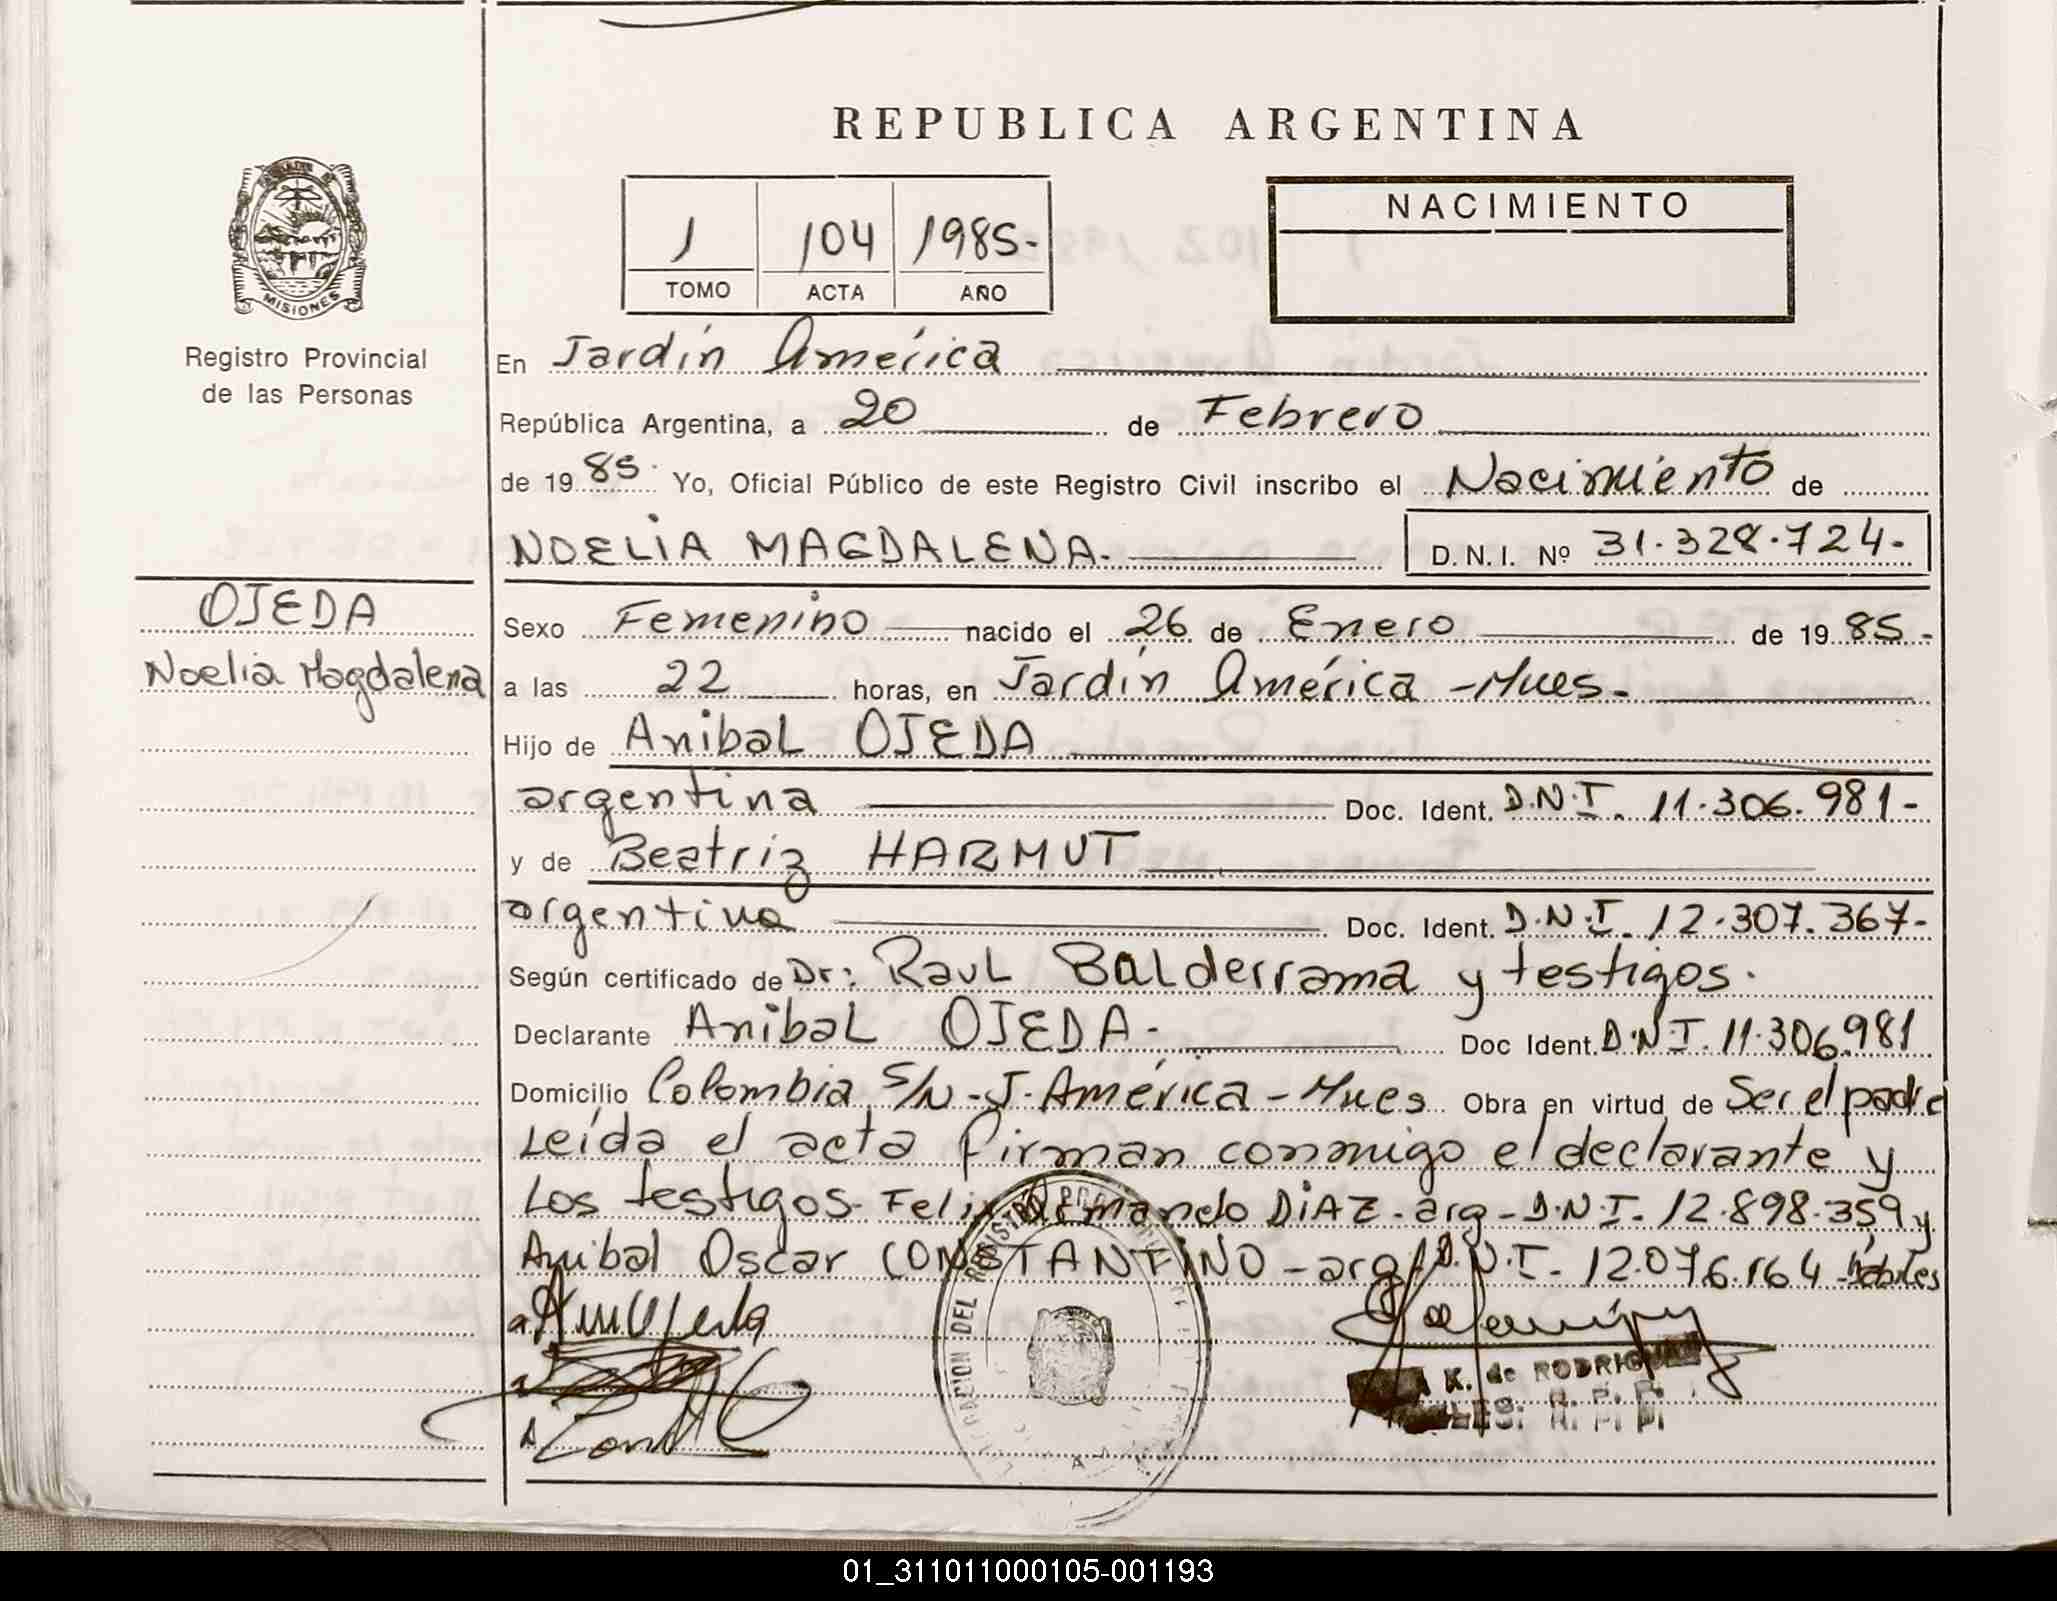 REPUBLICA ARGENTINA
1 104 1985-
TOMO ACTA AÑO
NACIMIENTO
MISIONES
Registro Provincial
de las Personas
OJEDA
Noelia Magdalena
En Jardín América
República Argentina, a 20 de Febrero
de 1985. Yo, Oficial Público de este Registro Civil inscribo el Nacimiento de
NOELIA MAGDALENA.
D.N.I. Nº 31.328.724-
Sexo Femenino nacido el 26 de Enero de 1985-
a las 22 horas, en Jardín América -Mnes-
Hijo de Anibal OJEDA
argentina Doc. Ident. D.N.I. 11.306.981-
y de Beatriz HARMUT
argentina Doc. Ident. D.N.I. 12.307.367-
Según certificado de Dr: Raul Balderrama y testigos.
Declarante Anibal OJEDA- Doc Ident. D.N.I. 11.306.981
Domicilio Colombia S/N - J. América - Mnes Obra en virtud de Ser el padre
Leída el acta firman conmigo el declarante y
Los testigos. Felix Armando DIAZ - arg - D.N.I. 12.898.359 y
Anibal Oscar CONSTANTINO - arg D.N.I. 12.076.164 - hábiles
DEL REGISTRO
K. de RODRIGUEZ
R. P. P.
01_311011000105-001193